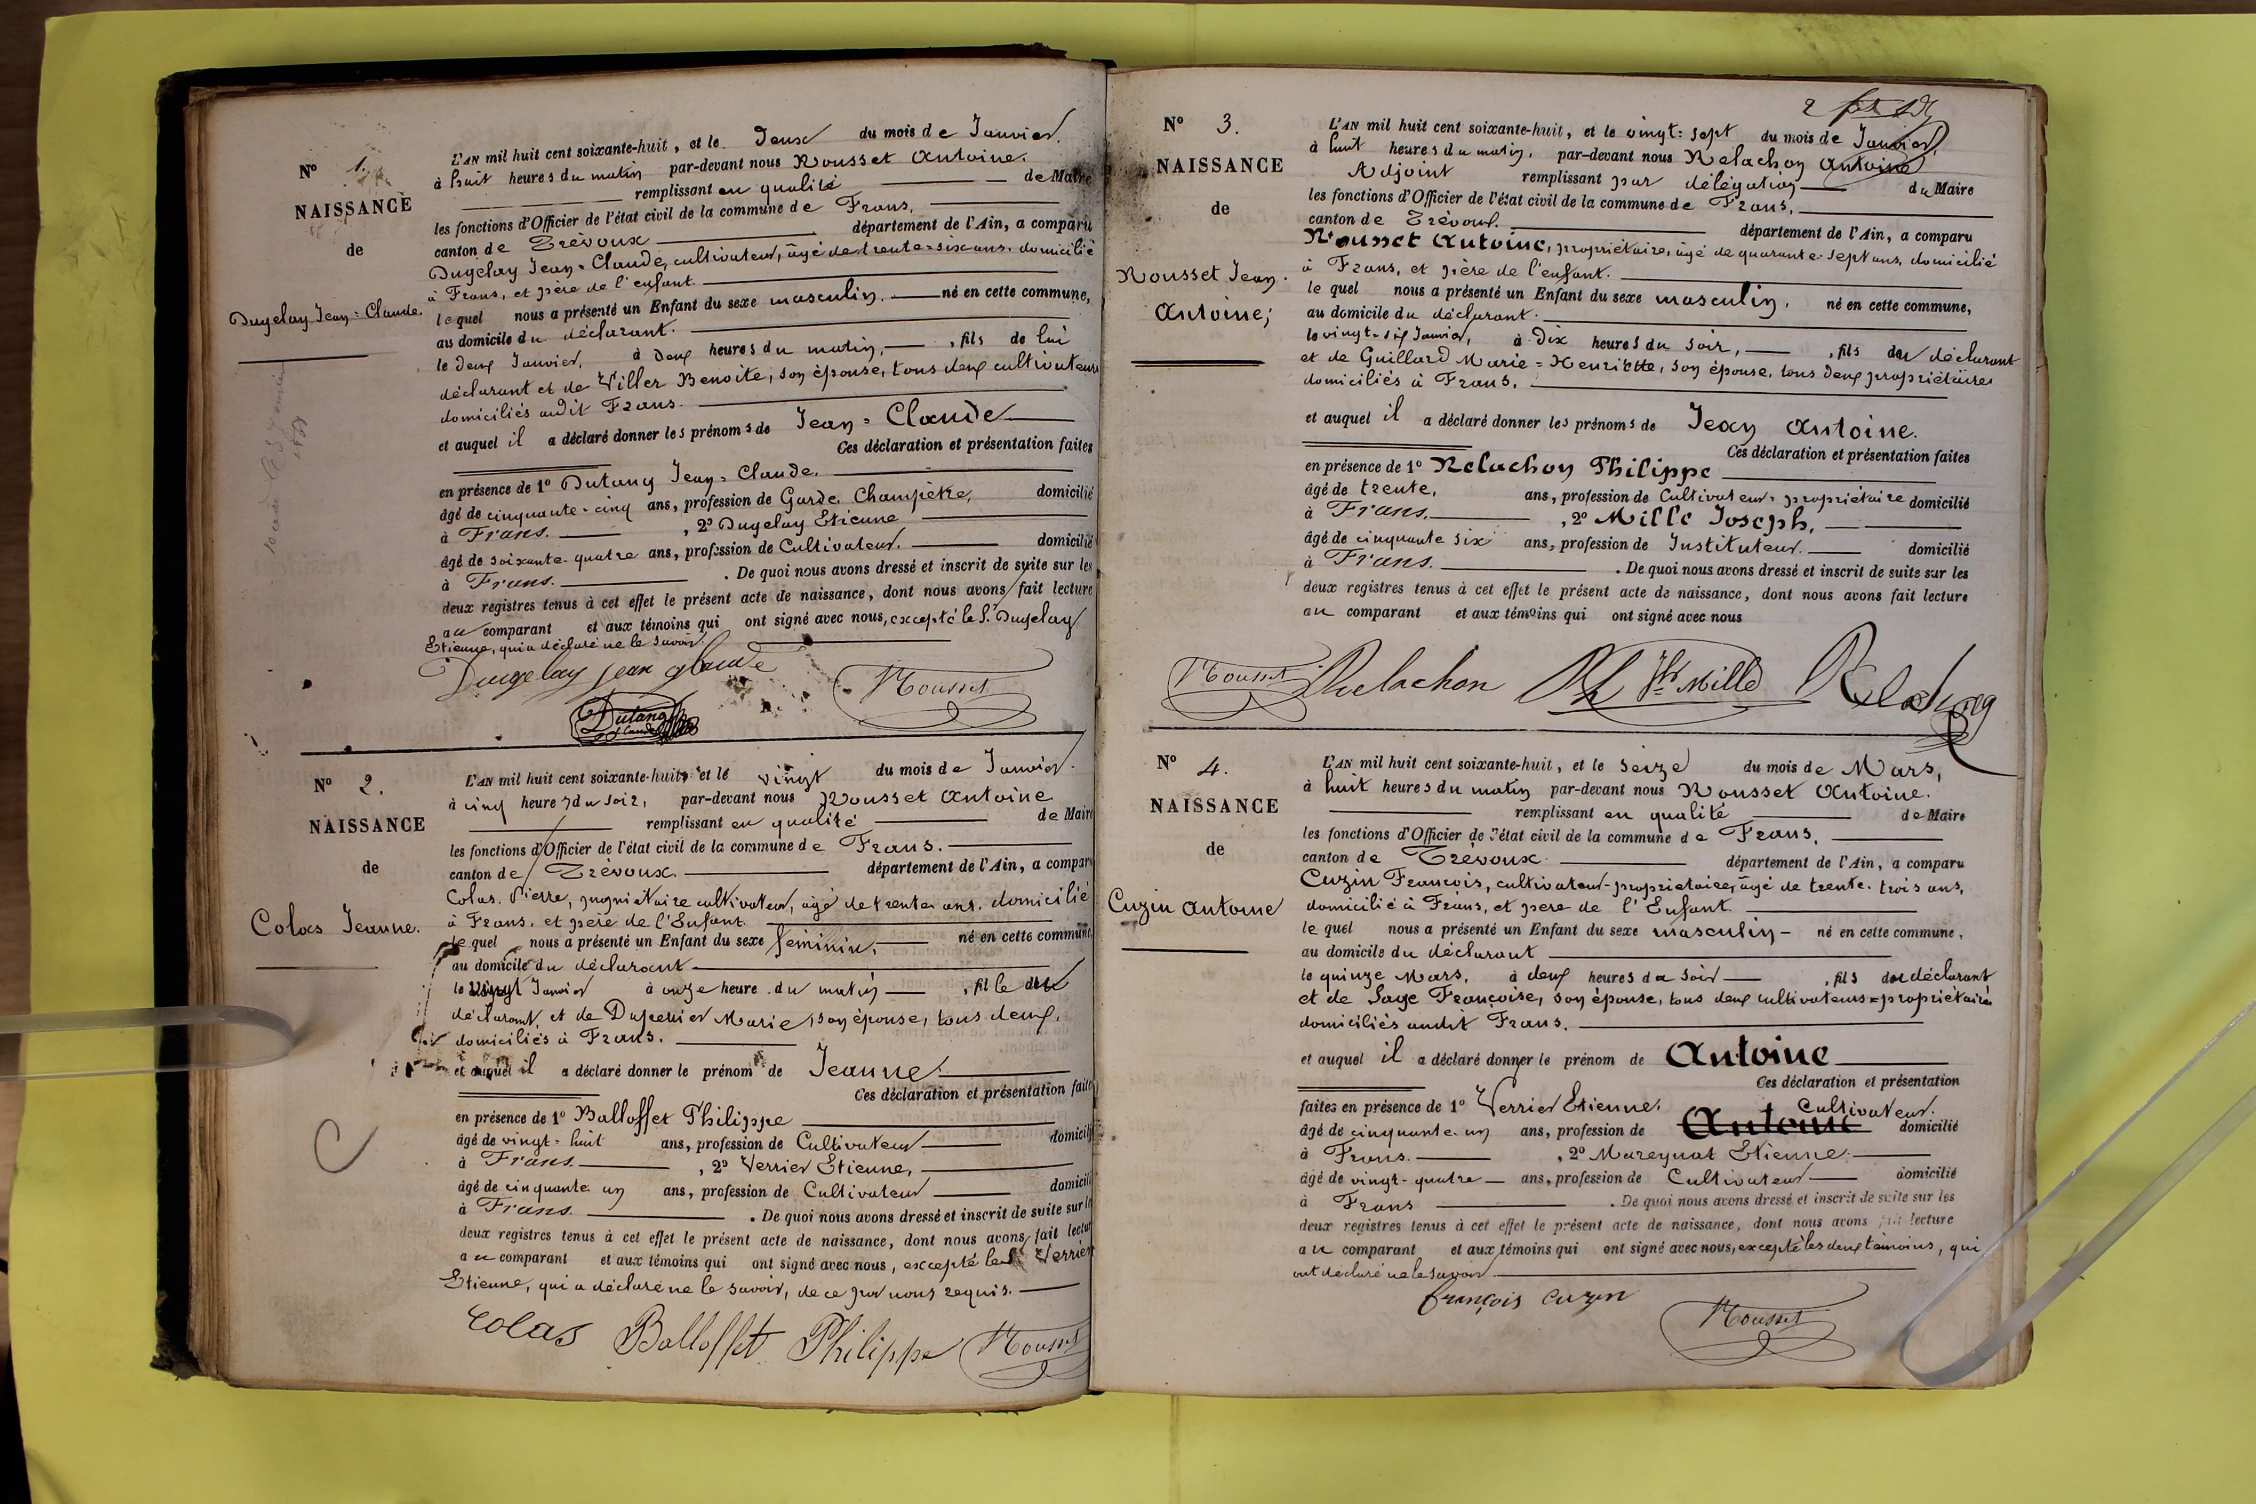 N° 1.
NAISSANCE
de
Dugelay Jean=Claude.
L'AN mil huit cent soixante-huit, et le Deux du mois de Janvier.
à huit heures du matin par-devant nous Rousset Antoine.
remplissant en qualité de Maire
les fonctions d'Officier de l'état civil de la commune de Frans,
canton de Trévoux département de l'Ain, a comparu
Dugelay Jean=Claude, cultivateur, âgé de trente=six ans, domicilié
à Frans, et père de l'enfant.
lequel nous a présenté un Enfant du sexe masculin. né en cette commune,
au domicile du déclarant.
le deux Janvier, à deux heures du matin, , fils de lui
déclarant et de Viller Benoite, son épouse, tous deux cultivateurs
domiciliés audit Frans.
et auquel il a déclaré donner les prénoms de Jean=Claude
Ces déclaration et présentation faites
en présence de 1° Dutang Jean=Claude.
âgé de cinquante-cinq ans, profession de Garde Champêtre, domicilié
à Frans. , 2° Dugelay Etienne
âgé de soixante-quatre ans, profession de Cultivateur. domicilié
à Frans. . De quoi nous avons dressé et inscrit de suite sur les
deux registres tenus à cet effet le présent acte de naissance, dont nous avons fait lecture
au comparant et aux témoins qui ont signé avec nous, excepté le S. Dugelay
Etienne, qui a déclaré ne le savoir.
Dugelay jean glaude
Rousset
Dutang
Claude
N° 2.
NAISSANCE
de
Colas Jeanne.
L'AN mil huit cent soixante-huit, et le vingt du mois de Janvier.
à cinq heures du soir, par-devant nous Rousset Antoine
remplissant en qualité de Maire
les fonctions d'Officier de l'état civil de la commune de Frans.
canton de Trévoux. département de l'Ain, a comparu
Colas Pierre, propriétaire cultivateur, âgé de trente ans, domicilié
à Frans, et père de l'Enfant.
le quel nous a présenté un Enfant du sexe féminin, né en cette commune,
au domicile du déclarant
le vingt Janvier à onze heure du matin , fille du
déclarant, et de Duperrier Marie, son épouse, tous deux,
domiciliés à Frans.
et auquel il a déclaré donner le prénom de Jeanne.
Ces déclaration et présentation faites
en présence de 1° Balloffet Philippe
âgé de vingt-huit ans, profession de Cultivateur domicilié
à Frans. , 2° Verrier Etienne,
âgé de cinquante un ans, profession de Cultivateur domicilié
à Frans. . De quoi nous avons dressé et inscrit de suite sur les
deux registres tenus à cet effet le présent acte de naissance, dont nous avons fait lecture
au comparant et aux témoins qui ont signé avec nous, excepté le Verrier
Etienne, qui a déclaré ne le savoir, de ce par nous requis.
Colas Balloffet Philippe Rousset
2
N° 3.
NAISSANCE
de
Rousset Jean.
Antoine;
L'AN mil huit cent soixante-huit, et le vingt=sept du mois de Janvier,
à huit heures du matin, par-devant nous Relachon Antoine
Adjoint remplissant par délégation du Maire
les fonctions d'Officier de l'état civil de la commune de Frans,
canton de Trévoux. département de l'Ain, a comparu
Rousset Antoine, propriétaire, âgé de quarante-sept ans, domicilié
à Frans, et père de l'enfant.
le quel nous a présenté un Enfant du sexe masculin, né en cette commune,
au domicile du déclarant.
le vingt-six Janvier, à dix heures du soir, , fils du déclarant
et de Guillard Marie=Henriette, son épouse, tous deux propriétaires
domiciliés à Frans.
et auquel il a déclaré donner les prénoms de Jean Antoine.
Ces déclaration et présentation faites
en présence de 1° Relachon Philippe
âgé de trente, ans, profession de Cultivateur-propriétaire domicilié
à Frans. , 2° Mille Joseph,
âgé de cinquante six ans, profession de Instituteur. domicilié
à Frans. . De quoi nous avons dressé et inscrit de suite sur les
deux registres tenus à cet effet le présent acte de naissance, dont nous avons fait lecture
au comparant et aux témoins qui ont signé avec nous
Rousset Relachon Ph Jh Mille Relachon
N° 4.
NAISSANCE
de
Cuzin Antoine
L'AN mil huit cent soixante-huit, et le seize du mois de Mars,
à huit heures du matin par-devant nous Rousset Antoine.
remplissant en qualité de Maire
les fonctions d'Officier de l'état civil de la commune de Frans.
canton de Trévoux département de l'Ain, a comparu
Cuzin François, cultivateur-propriétaire, âgé de trente-trois ans,
domicilié à Frans, et père de l'Enfant.
le quel nous a présenté un Enfant du sexe masculin né en cette commune,
au domicile du déclarant
le quinze Mars, à deux heures du soir , fils du déclarant
et de Sage Françoise, son épouse, tous deux cultivateurs=propriétaires
domiciliés audit Frans.
et auquel il a déclaré donner le prénom de Antoine
Ces déclaration et présentation
faites en présence de 1° Verrier Etienne. Cultivateur.
âgé de cinquante-un ans, profession de Antoine domicilié
à Frans. , 2° Mareynat Etienne.
âgé de vingt-quatre ans, profession de Cultivateur domicilié
à Frans . De quoi nous avons dressé et inscrit de suite sur les
deux registres tenus à cet effet le présent acte de naissance, dont nous avons fait lecture
au comparant et aux témoins qui ont signé avec nous, excepté les deux témoins, qui
ont déclaré ne le savoir
françois cuzin
Rousset